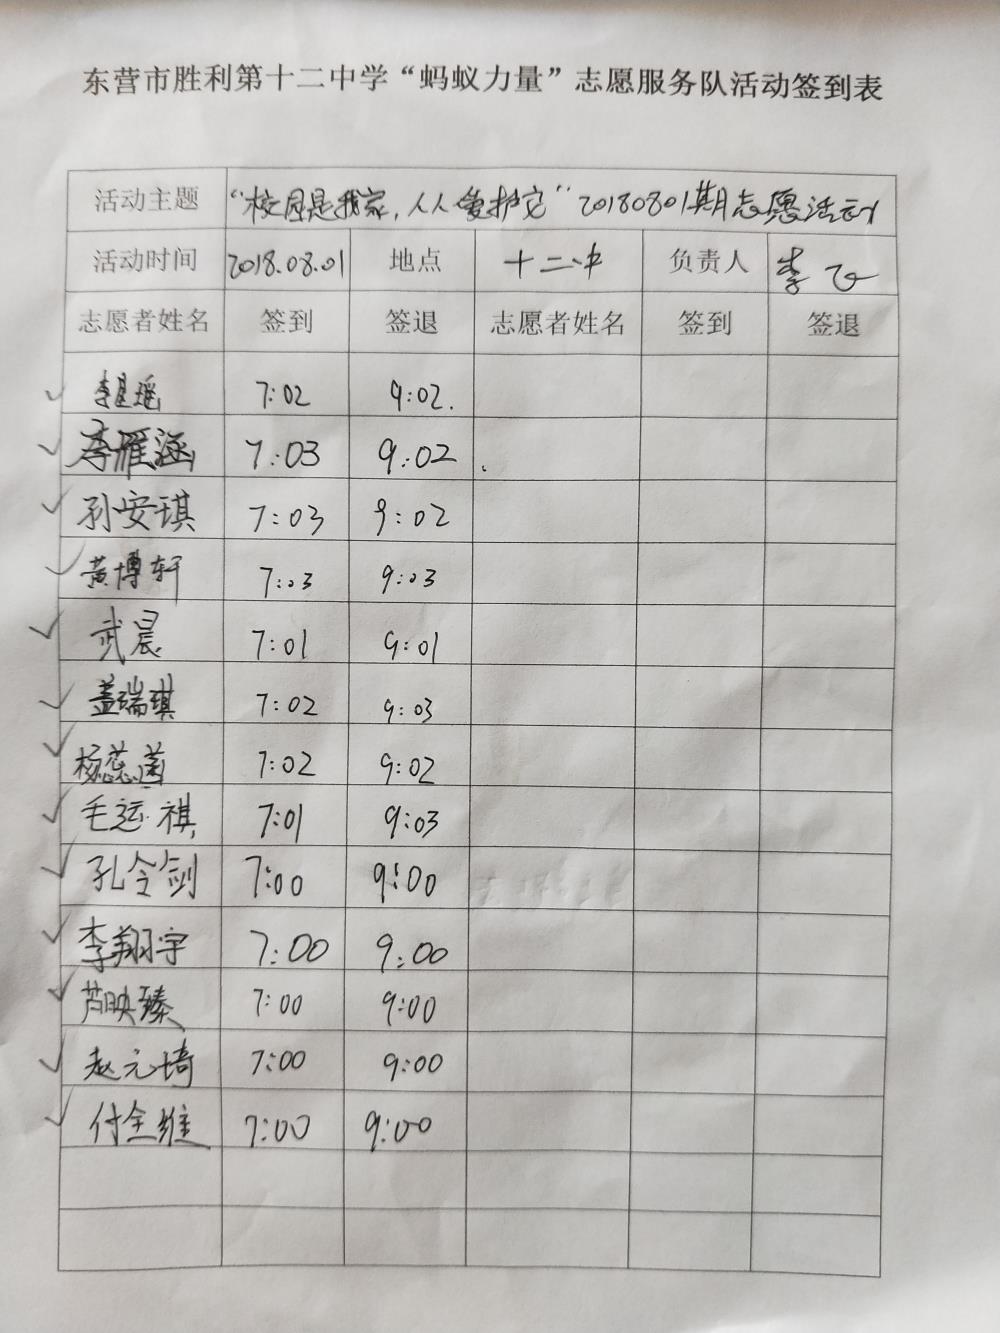 东营市胜利第十二中学“蚂蚁力量”志愿服务队活动签到表
活动主题 “校园是我家，人人爱护它”20180801期志愿活动
活动时间 2018.08.01 地点 十二中 负责人 李飞
志愿者姓名 签到 签退 志愿者姓名 签到 签退
李星瑶 7:02 9:02.
李雁涵 7:03 9:02
孙安琪 7:03 9:02
黄博轩 7:03 9:03
武晨 7:01 9:01
盖瑞琪 7:02 9:03
杨蕊菡 7:02 9:02
毛运祺 7:01 9:03
孔令剑 7:00 9:00
李翔宇 7:00 9:00
芦映臻 7:00 9:00
赵元琦 7:00 9:00
付全维 7:00 9:00